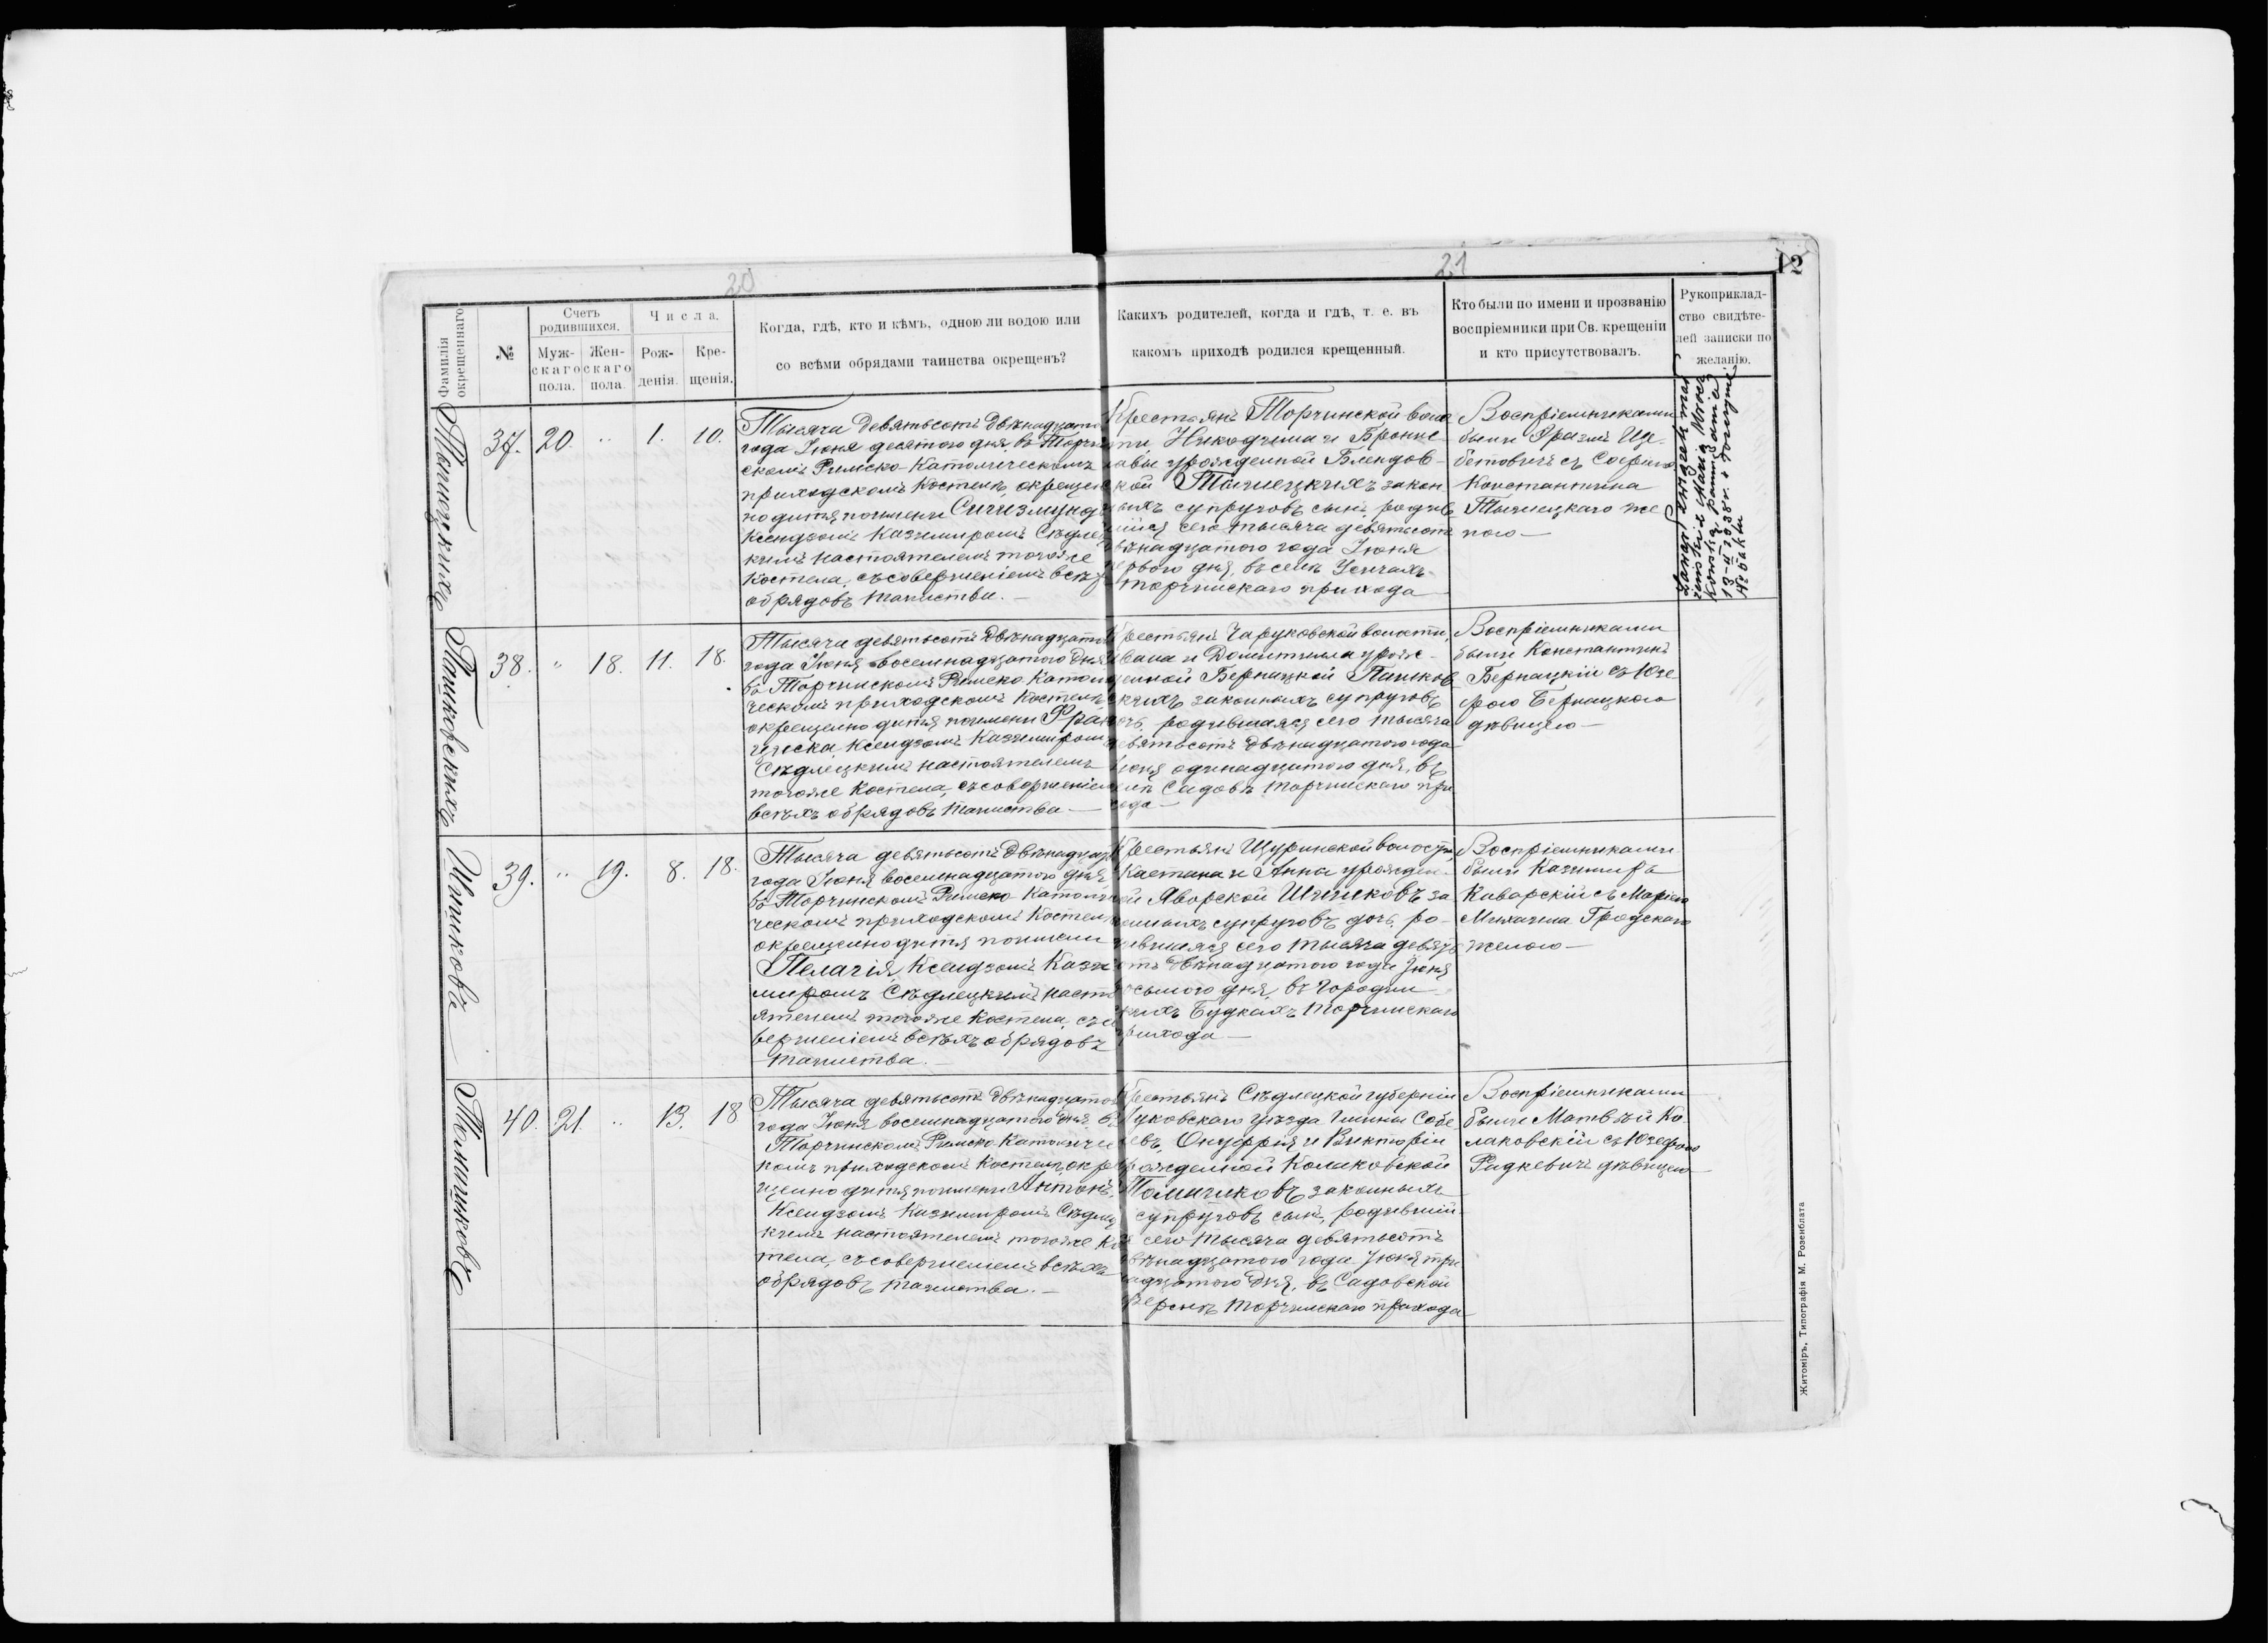 20
21
12
Фамилія окрещеннаго
№
Счетъ родившихся.
Мужскаго пола.
Женскаго пола.
Числа.
Рожденія.
Крещенія.
Когда, гдѣ, кто и кѣмъ, одною ли водою или
со всѣми обрядами таинства окрещенъ?
Какихъ родителей, когда и гдѣ, т. е. въ
какомъ приходѣ родился крещенный.
Кто были по имени и прозванію
воспріемники при Св. крещеніи
и кто присутствовалъ.
Рукоприклад-
ство свидѣте-
лей записки по
желанію.
37. 20. " 1. 10.
Тысяча девятьсотъ двѣнадцато
года Іюня десятого дня, въ Торчи
скомъ Римско-Католическомъ
приходскомъ Костелѣ, окреще
но дитя по имени Сигизмунд
Ксендзомъ Казимиромъ Сѣдлец
кимъ настоятелемъ тогоже
Костела, съ совершеніемъ всѣх
обрядовъ таинства.—
Крестьянъ Торчинской воло
сти, Никодима и Бронис-
лавы урожденной Блендов-
ской законн
ыхъ супруговъ сынъ, родив
шійся сего тысяча девятьсотъ
двѣнадцатого года Іюня
перваго дня, въ селѣ Усичахъ
Торчинскаго прихода
Воспріемниками
были
съ Софіею
Константина
же
ною—
Maria
13-II 1938 r.
Nr 6 aktu
Пашковскихъ
38. " 18. 11. 18.
Тысяча девятьсотъ двѣнадцато
года Іюня восемнадцатого дня
въ Торчинскомъ Римско-Катол
ческомъ приходскомъ Костелѣ,
окрещено дитя по имени Фран
циска Ксендзомъ Казимиромъ
Сѣдлецкимъ настоятелемъ
тогоже Костела, съ совершеніем
всѣхъ обрядовъ таинства—
Крестьянъ Чаруковской волости,
Ивана и Домитилла урож-
денной Бернацкой Пашков
скихъ законныхъ супруговъ
дочь, родившаяся сего тысяча
девятьсотъ двѣнадцатого года
Іюня одинадцатого дня, въ
селѣ Садовъ Торчинскаго при
хода—
Воспріемниками
были Константинъ
Бернацкій съ Юзе
фою Бернацкого
дѣвицею—
39. " 19. 8. 18.
Тысяча девятьсотъ двѣнадцат
года Іюня восемнадцатого дня
въ Торчинскомъ Римско-Католи
ческомъ приходскомъ Костел
окрещено дитя по имени
Пелагія Ксендзомъ Кази
миромъ Сѣдлецкимъ насто
ятелемъ тогоже Костела, съ со
вершеніемъ всѣхъ обрядовъ
таинства.—
Крестьянъ Щуринской волости,
Каетана и Анна урожден-
ной Яворской за
конныхъ супруговъ дочь, ро-
дившаяся сего тысяча девять
сотъ двѣнадцатого года Іюня
осьмого дня, въ Городни
Будкахъ Торчинскаго
прихода—
Воспріемниками
были Казимиръ
Каварскій съ Маріею
Михаила Гродскаго
женою—
Томчиковъ
40. 21. " 13. 18
Тысяча девятьсотъ двѣнадцато
года Іюня восемнадцатого дня, въ
Торчинскомъ Римско-Католиче
комъ приходскомъ Костелѣ, окр
щено дитя по имени Антонъ,
Ксендзомъ Казимиромъ Сѣдлец
кимъ настоятелемъ тогоже Ко
тела, съ совершеніемъ всѣхъ
обрядовъ таинства.—
Крестьянъ Сѣдлецкой губерніи
Луковскаго уѣзда Гмины
Онуфрія и Викторіи
урожденной Колаковской
Томчиковъ законныхъ
супруговъ сынъ, родившій-
ся сего тысяча девятьсотъ
двѣнадцатого года Іюня три
надцатого дня, въ Садовской
Торчинскаго прихода
Воспріемниками
были Матвѣй Ко-
лаковскій съ Юзефою
Радкевичъ дѣвицею—
Житоміръ, Типографія М. Розенблата